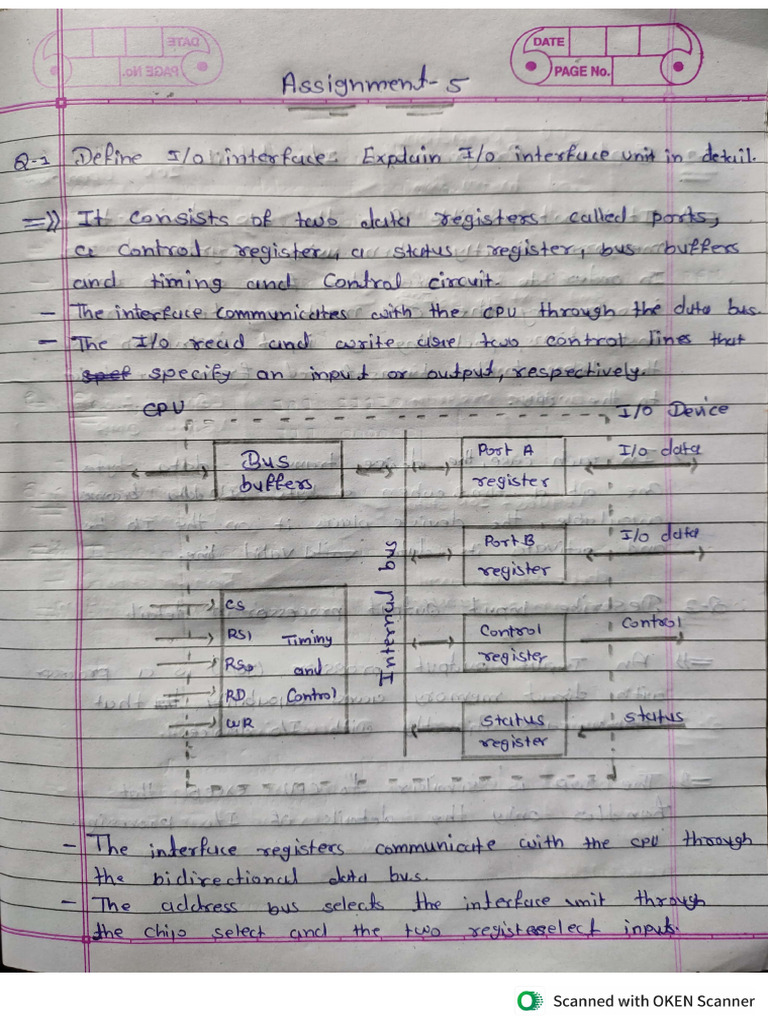 DATE
PAGE No.
DATE
PAGE No.
Assignment-5
Q-1 Define I/O interface. Explain I/O interface unit in detail.
=>) It consists of two data registers called ports,
a control register, a status register, bus buffers
and timing and control circuit.
- The interface communicates with the CPU through the data bus.
- The I/O read and write are two control lines that
specify an input or output, respectively.
CPU
I/O Device
Bus
buffers
Port A
register
I/O data
Port B
register
I/O data
Internal bus
CS
RS1
RS0
RD
WR
Timing
and
Control
Control
register
Control
Status
register
Status
- The interface registers communicate with the CPU through
the bidirectional data bus.
- The address bus selects the interface unit through
the chip select and the two register select inputs.
Scanned with OKEN Scanner